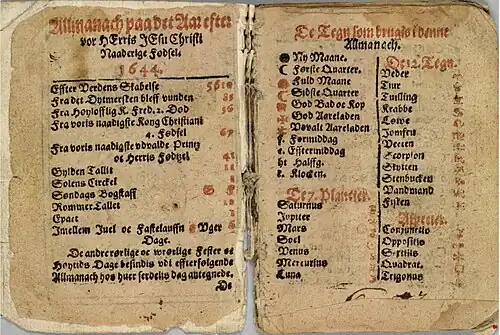 Allmanach paa det Aar efter
vor HErris JEsu Christi
Naaderige Fødsel.
1644.
Effter Verdens Skabelse
Fra det Dytmersken bleff vunden 85
Fra Høylofflig K. Fred. 2. Død 56
Fra voris naadigste Kong Christiani
4. Fødsel 67
Fra voris naadigste udvalde Printz
oc Herris Fødtzel 41
Gylden Tallit 11
Solens Circkel 1
Søndags Bogstaff G F
Rommer Tallet
Epact 1
Imellem Juel oc Fastelauffn Uger
Dage.
De andre rørlige oc urørlige Fester oc
Høytids Dage befindis udi effterfølgende
Allmanach hos huer serdelis dag antegnede.
De
De Tegn som brugis i denne
Allmanach.
Ny Maane.
Første Quarter.
Fuld Maane
Sidste Quarter
God Bad oc Kop
God Aareladen
Udvalt Aareladen
f. Formiddag
e. Efftermiddag
ht Halffg.
k. Klocken.
De 7. Planeter.
Saturnus
Jupiter
Mars
Soel
Venus
Mercurius
Luna
De 12. Tegn.
Veder
Tiur
Tuilling
Krabbe
Løwe
Jomfru
Vecten
Scorpion
Skytten
Stenbucken
Vandmand
Fisken
Aspecter.
Conjunctio
Oppositus
Sextilis
Quadrat.
Trigonus